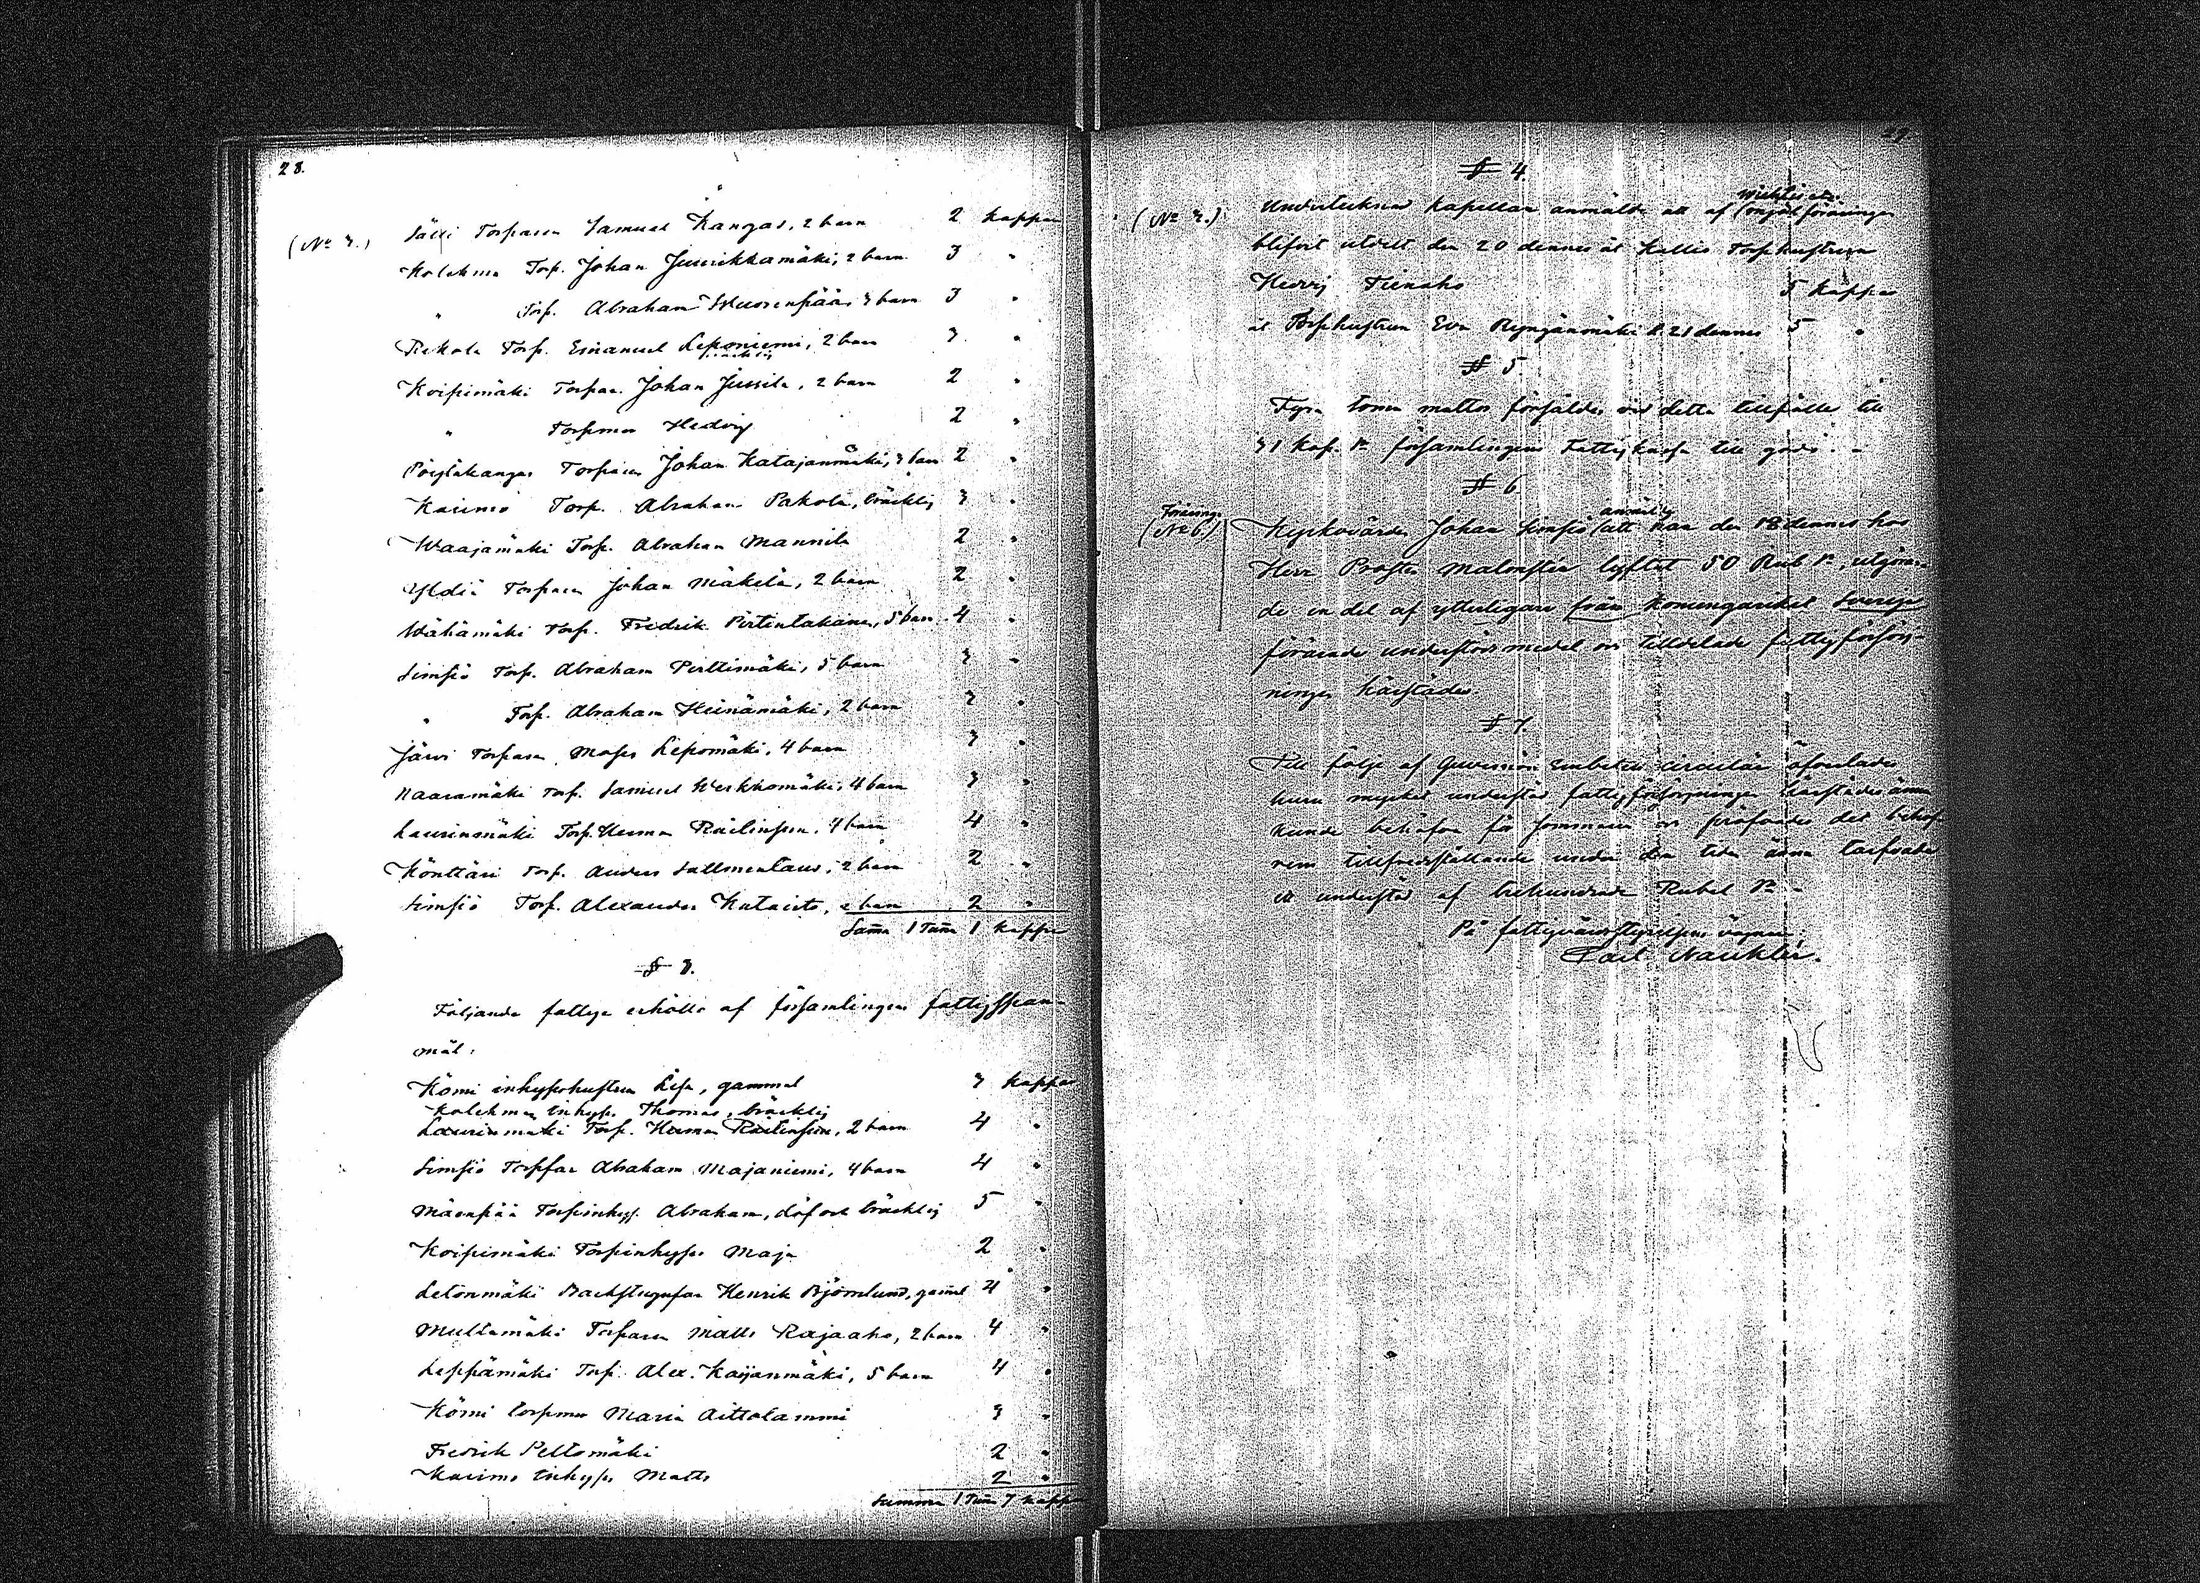 28.
(No 3.) Sälli Torparen Samuel Kangas, 2 barn 2 kappar
Kolehma Torp. Johan Juurikkamäki, 2 barn 3 "
" Torp. Abraham Wuorenpää, 3 barn 3 "
Rekola Torp. Emanuel Leponiemi, 2 barn 3 "
Koipimäki Torpar. Johan Jussila, 2 barn 2 "
" Torpmor Hedvig 2 "
Torparen Johan Katajanmäki, 3 barn 2 "
Kaurmo Torp. Abraham Pakola, bräcklig 3 "
Waajamäki Torp. Abraham Mannila 2 "
Torparen Johan Mäkelä, 2 barn 2 "
Wähämäki Torp. Fredrik 5 barn 4 "
Simsiö Torp. Abraham Perttimäki, 5 barn 3 "
" Torp. Abraham Heinämäki, 2 barn 3 "
Järvi Torparen Moses Lepomäki, 4 barn 3 "
Naaramäki Torp. Samuel 4 barn 3 "
Laurinmäki Torp. Herman 4 barn 4 "
Könttäri Torp. Anders 2 barn 2 "
Simsiö Torp. Alexander 2 barn 2 "
Sama 1 Tuna 1 kappe
§ 3.
Följande fattige erhöllo af församlingens fattigspan-
mål:
Körni inhyseshustrun Lisa, gammal 3 kappar
Kolehmen inhyse. Thomas, bräcklig
Laurinmäki Torp. Herman 2 barn 4 "
Simsiö Torpar Abraham Majaniemi, 4 barn 4 "
Mäenpää Torpinhys. Abraham, döf och bräcklig 5 "
Koipimäki Torpinhyses Maja 2 "
Letonmäki Backstugufar Henrik Björnlund, gamal 4 "
Multamäki Torparen Matts Rajaaho, 2 barn 4 "
Leppämäki Torp. Alex. Kaijanmäki, 5 barn 4 "
Körni torpmor Maria Aittolammi 3 "
Fredrik Peltomäki 2 "
Kaurmo inhyses Matts 2 "
Summa 1 Tuna 7 kappar
29
§ 4.
(No 3.) Undertecknad Kapellan anmälde att af
blifvit utdelt den 20 dennes åt Kallio Torphustrun
Hedvig Tienaho 5 kappar
åt Torphustrun Eva d. 21 dennes 5 "
§ 5
Fyra tomma mattor försåldes vid detta tillfälle till
31 kop. Sr. församlingens Fattigkassa till godo. -
§ 6.
(No 6.) Kyrkovärden Johan Simsiö anmälde att han den 18 dennes hos
Herr Prosten Malmsten lyftat 50 Rub Sr., utgöran-
de en del af ytterligare från Konungariket Sverige
förärade understödsmedel och tilldelade fattigförsörj-
ningen härstädes.
§ 7.
Till följe af Guvernörs Embetets circulär öfverlades
huru mycket understöd fattigförsörjningen härstädes ännu
kunde behöfva för sommaren och pröfvades det behof-
vem tillfredsställande under den tiden ännu tarfvade
ett understöd af trehundrade Rubel Sr. -
På fattigvårdsstyrelsens vägnar:
Carl Nauklér.